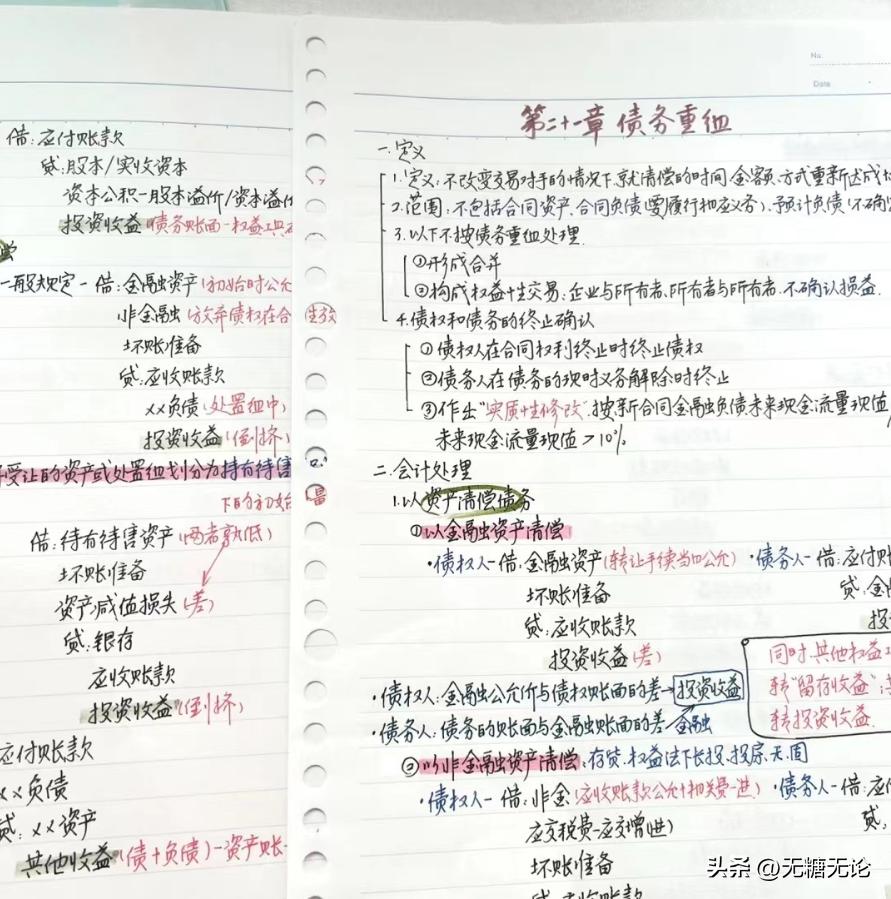 借:应付账款
贷:股本/实收资本
资本公积—股本溢价/资本溢价
投资收益(债务账面-权益工具
一般规定-借:金融资产(初始时公允
非金融(放弃债权在合
坏账准备
贷:应收账款
xx负债(处置组中)
投资收益(倒挤)
受让的资产或处置组划分为持有待售
下的初始
借:持有待售资产(两者孰低)
坏账准备
资产减值损失(差)
贷:银存
应收账款
投资收益(倒挤)
应付账款
xx负债
贷:xx资产
其他收益(债+负债)-资产账
No.
Date
第二十一章 债务重组
一.定义
1.定义:不改变交易对手的情况下.就清偿的时间.金额.方式重新达成
2.范围:不包括合同资产、合同负债(要履行相应义务)、预计负债(不确定
3.以下不按债务重组处理.
①形成合并
②构成权益性交易:企业与所有者、所有者与所有者.不确认损益.
4.债权和债务的终止确认
①债权人在合同权利终止时终止债权
②债务人在债务的现时义务解除时终止
③作出"实质性修改".按新合同金融负债未来现金流量现值
未来现金流量现值>10%.
二.会计处理
1.以资产清偿债务
①以金融资产清偿
·债权人-借:金融资产(转让手续当日公允) ·债务人-借:应付账
坏账准备 贷:金融
贷:应收账款 投资
投资收益(差)
同时.其他权益工
·债权人:金融公允价与债权账面的差→投资收益 转"留存收益";
·债务人:债务的账面与金融账面的差 金融 转投资收益.
②以非金融资产清偿:存货.权益法下长投.投房.无.固
·债权人-借:非金(应收账款公允+相关费-进) ·债务人-借:应付
应交税费-应交增(进) 贷:
坏账准备
贷:应收账款
头条 @无糖无论